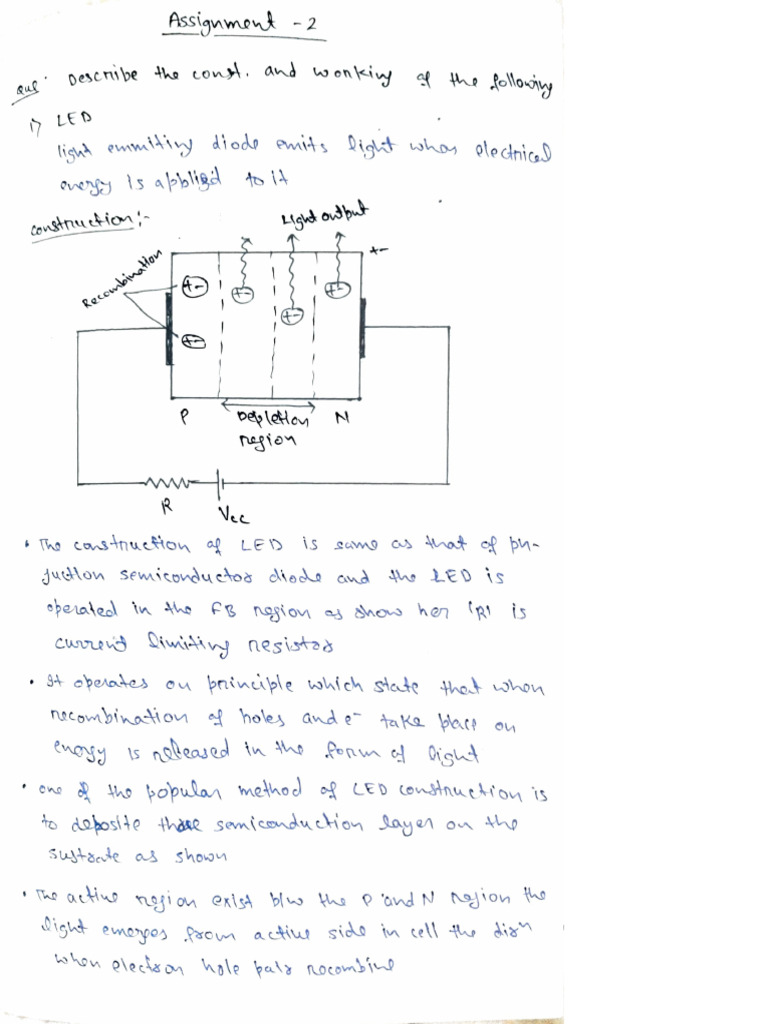 Assignment - 2
Que: Describe the const. and working of the following
1) LED
light emmitiny diode emits light when electrical
energy is applied to it
construction:-
Light output
+-
Recombination
+-
+-
+-
+-
+-
P
Depletion
region
N
R
Vcc
• The construction of LED is same as that of pn-
juction semiconductor diode and the LED is
operated in the FB region as show her 'R' is
current limiting resistor
• It operates on principle which state that when
recombination of holes and e- take place on
energy is released in the form of light
• one of the popular method of LED construction is
to deposite three semiconduction layer on the
sustrate as shown
• The active region exist b/w the P and N region the
light emerges from active side in cell the dirn
when electron hole pair recombine